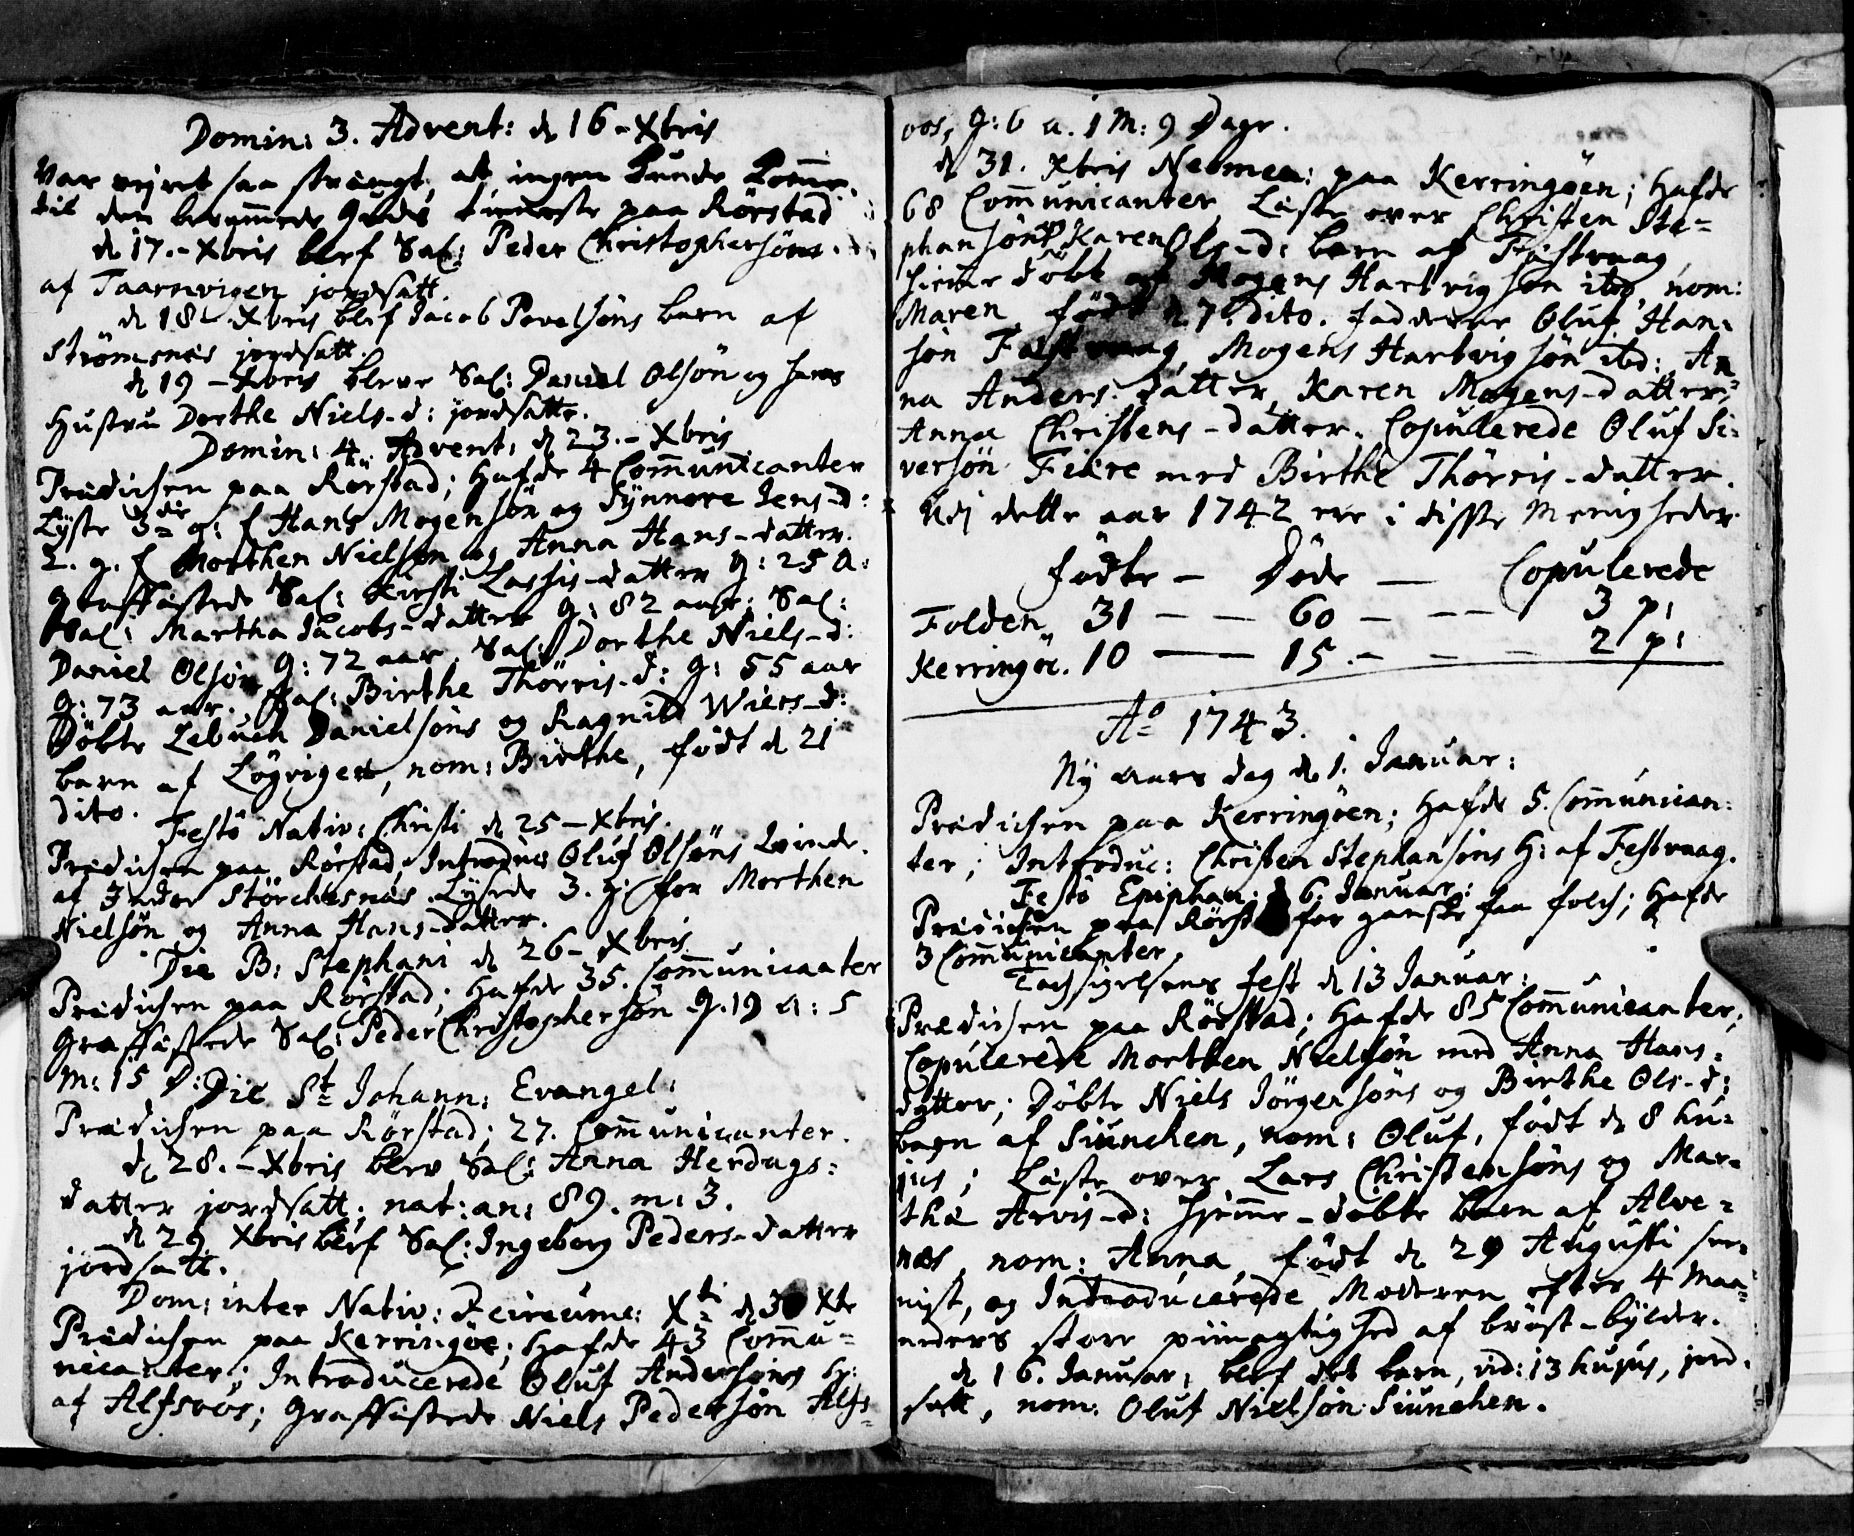 Domin: 3. Advent: d 16 - Xbris
Var vejret saa strængt, at ingen kunde komme
til den berammede Guds tieneste paa Rörstad
d 17. - Xbris blef Sal: Peder Christophersön
af Taarnvigen jordsatt.
d 18 - Xbris blef Jacob Povelsöns barn af
Strömsnæs jordsatt.
d 19 - Xbris bleve Sal: Daniel Olsön og hans
Hustru Dorthe Niels-d: jordsatte.
Domin: 4. Advent: d 23. - Xbris
Prædichen paa Rörstad; Hafde 4 Communicanter
Lÿste 3die g: f Hans Mogensön og Sÿnnove Jens-d:
2. g. f Morthen Nielsön og Anna Hans-datter.
Graffæstede Sal: Kirsti Lassis-datter g: 25 a:
Sal: Martha Jacobs-datter g: 82 aar; Sal:
Daniel Olsön g: 72 aar, Sal: Dorthe Niels-d:
g: 73 aar. Sal: Birthe Thörris-d: g: 55 aar
Döbte Zebueh Danielsöns og Ragnild Wiers-d:
barn af Lögvigen, nom: Birthe, födt d 21
dito.
Festo Nativ: Christi d 25 - Xbris.
Prædichen paa Rörstad, Introduc: Oluf Olsöns Qvinde.
af Inder Störchesnæs. Lÿste 3. g: for Morthen
Nielsön og Anna Hans-datter.
Die B: Stephani d 26 - Xbris
Prædichen paa Rörstad; Hafde 35. Communicanter
Graffæstede Sal: Peder Christophersön g. 19 a: 5
M: 15 D:
Die St Johann: Evangel:
Prædichen paa Rörstad; 27. Communicanter.
d 28. - Xbris blev Sal: Anna Herdags:
datter jordsatt; nat: an: 89. m: 3.
d 29 Xbris blef Sal: Ingeborg Peders-datter
jordsatt.
Dom: inter Nativ: & Circume: Xti d 30 Xbr
Prædichen paa Kerringöe; Hafde 43 Commu-
nicanter; Introducerede Oluf Andersöns H:
af Alfsvos; Graffæstede Niels Pedersön Alfs-
vos, g: 6 a. 1 M: 9 Dage.
d 31. Xbris Neomen: paa Kerringöen; Hafde
68 Communicanter, Læste over Christen Ste-
phansöns & Karen Ols-d: barn af Festvaag
hieme döbt af Mogens Hartvigsön ibd, nom:
Maren, födt d. 7. dito. Faddere Oluf Han-
sön Festvaag, Mogens Hartvigsön ibd: An
na Anders-datter, Karen Mogens-datter,
Anna Christens-datter. Copulerede Oluf Si-
versön Fiære med Birthe Thörris-datter.
Udj dette aar 1742 ere i disse Menigheder
födte - Döde - Copulerede
Folden 31 - - 60 - - - 3 p:
Kerringöe. 10 - 15. - - - 2 p:
Ao 1743.
Nÿ aars dag d 1. Januar:
Prædichen paa Kerringöen; Hafde 5. Communican-
ter; Introduc: Christen Stephansöns H: af Festvaag.
Festo Epiphan: d 6. Januar:
Prædichen paa Rörstad for ganske faa folch; Hafde
3 Communicanter.
Tachsigelsens fest d 13 Januar:
Prædichen paa Rörstad; Hafde 85 Communicanter;
Copulerede Morthen Nielsön med Anna Hans-
datter; Döbte Niels Jörgensöns og Birthe Ols-d:
barn af Siunchen, nom: Oluf, födt d 8 hu-
jus; Læste over Lars Christensöns og Mar-
tha Arvis-d: hjemme-döbte barn af Alve-
næs, nom: Anna, födt d 29 Augusti sve-
nist, og Introducerede Moderen efter 4 Maa-
neders store uimagtighed af bröst-bÿlder.
d 16. Januar: blef det barn, vid: 13 hujus, jord-
satt, nom: Oluf Nielsön Siunchen.